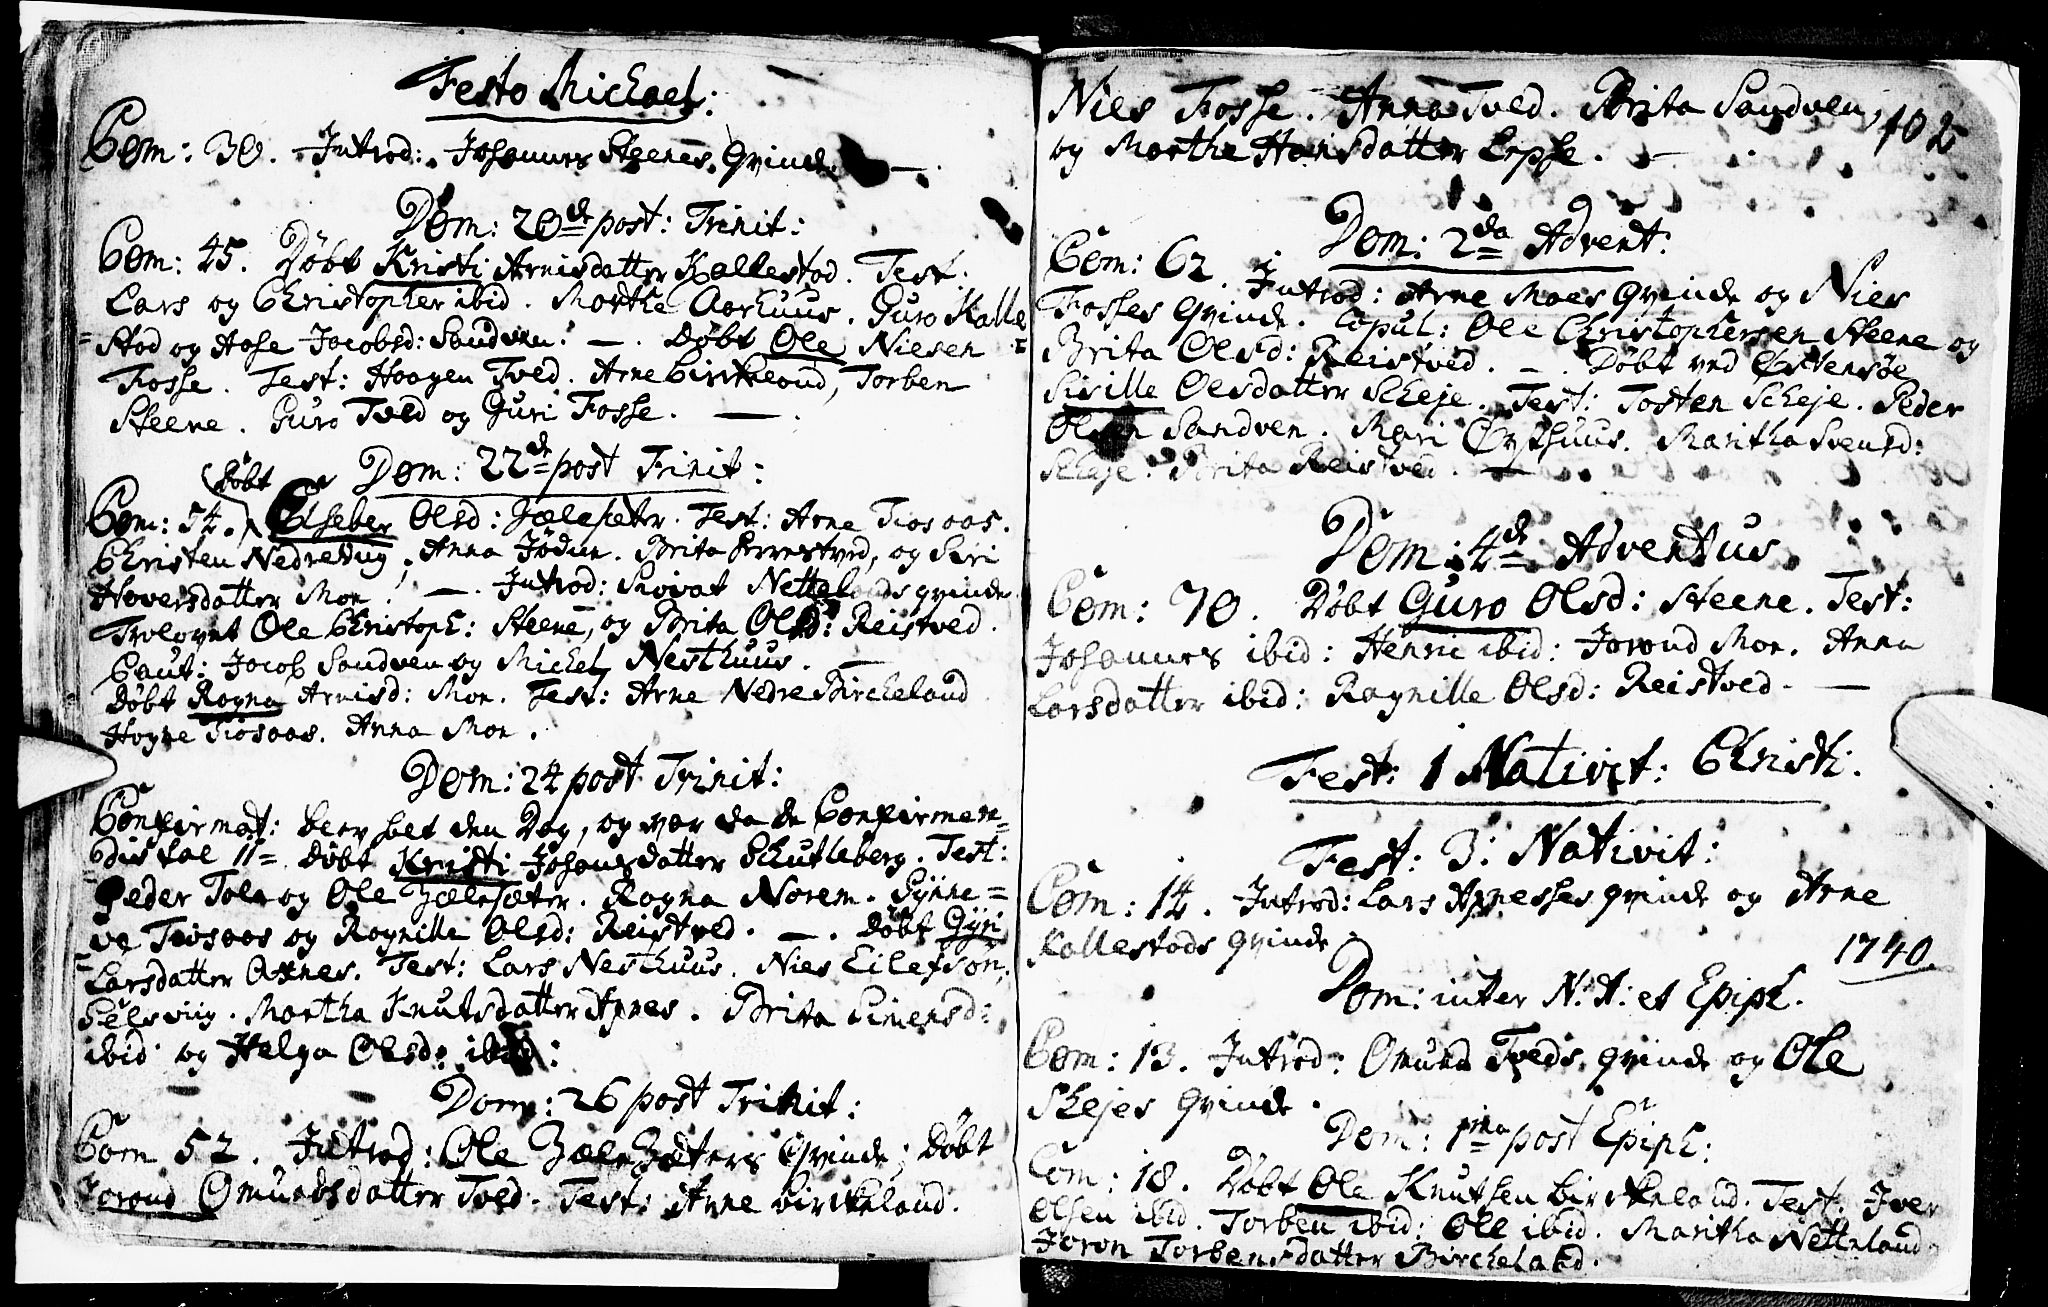 Festo Michael:
Com: 30. Introd: Johannes Steenes Qvinde. —
Dom: 20de post: Trinit:
Com: 45. Döbt Kristi Arnisdatter Kallestad. Test:
Lars og Christopher ibid. Marthe Aarhuus. Guro Kalle
=stad og Aase Jacobsd: Sandven. —. Döbt Ole Nielsen
Fosse. Test: Haagen Tved. Arne Birkeland, Torben
Steene. Guro Tved og Guri Fosse. —
Dom: 22de post Trinit:
Döbt
Com: 54. Elsebe Olsd: Jælesæter. Test: Arne Tiosaas.
Christen Nedretvug, Anna Jödun. Brita, og Siri
Haversdatter Moe. —. Introd: Siovat Nettelands qvinde
Trolovet Ole Christoph: Steene, og Brita Olsd: Reistved.
Caut: Jacob Sandven og Michel Nesthuus. —
Döbt Ragna Arnisd: Moe. Test: Arne Nedre Bircheland
Hogne Tiosaas. Anna Moe.
Dom: 24 post Trinit:
Confirmat: blev het den Dag, og var da de Confirmen=
dis tal 11= Döbt Kristi Johansdatter Schutleberg. Test:
Peder Tolo og Ole Jælesæter. Ragna Norem. Gynne=
ve Tiosaas og Ragnille Olsd: Reistved. —. Döbt Gyri
Larsdatter Axnes. Test: Lars Nesthuus. Niels Eilefsön
Selsviig. Martha Knutsdatter Axnes. Brita Simensd:
ibid og Helga Olsd: ibid:
Dom: 26 post Trinit:
Com 52. Introd: Ole Jælesæters Qvinde; Döbt
Jorond Omundsdatter Tved. Test: Arne Birkeland.
Niels Fosse. Anna Tved. Brita Sandven,
102
og Marthe Hansdatter Lepse. —
Dom: 2da Advent:
Com: 62. Introd: Arne Moes Qvinde og Niels
Fosses Qvinde. Copul: Ole Christophersen Steene og
Brita Olsd: Reistved. —. Döbt ved Östensöe
Sirille Olsdatter Scheje. Test: Tosten Scheje. Peder
Olsen Sandven. Mari Östhuus. Maritha Svensd:
Scheje. Brita Reistved. —
Dom: 4de Adventus
Com: 70. Döbt Guro Olsd: Steene. Test:
Johannes ibid: Henric ibid: Jorond Moe. Anna
Larsdatter ibid: Ragnille Olsd: Reistved. —
Fest: 1 Nativit: Christi.
Fest: 3: Nativit:
Com: 14. Introd: Lars Axnesses qvinde og Arne
Kallestads qvinde
1740.
Dom: inter N: A: et Epiph.
Com: 13. Introd: Omund Tveds qvinde og Ole
Shejes qvinde.
Dom: 1ma post Epiph:
Com: 18. Döbt Ole Knutsen Birkeland. Test: Iver
Olsen ibid. Torben ibid: Ole ibid. Maritha Netteland
Joron Torbensdatter Bircheland.